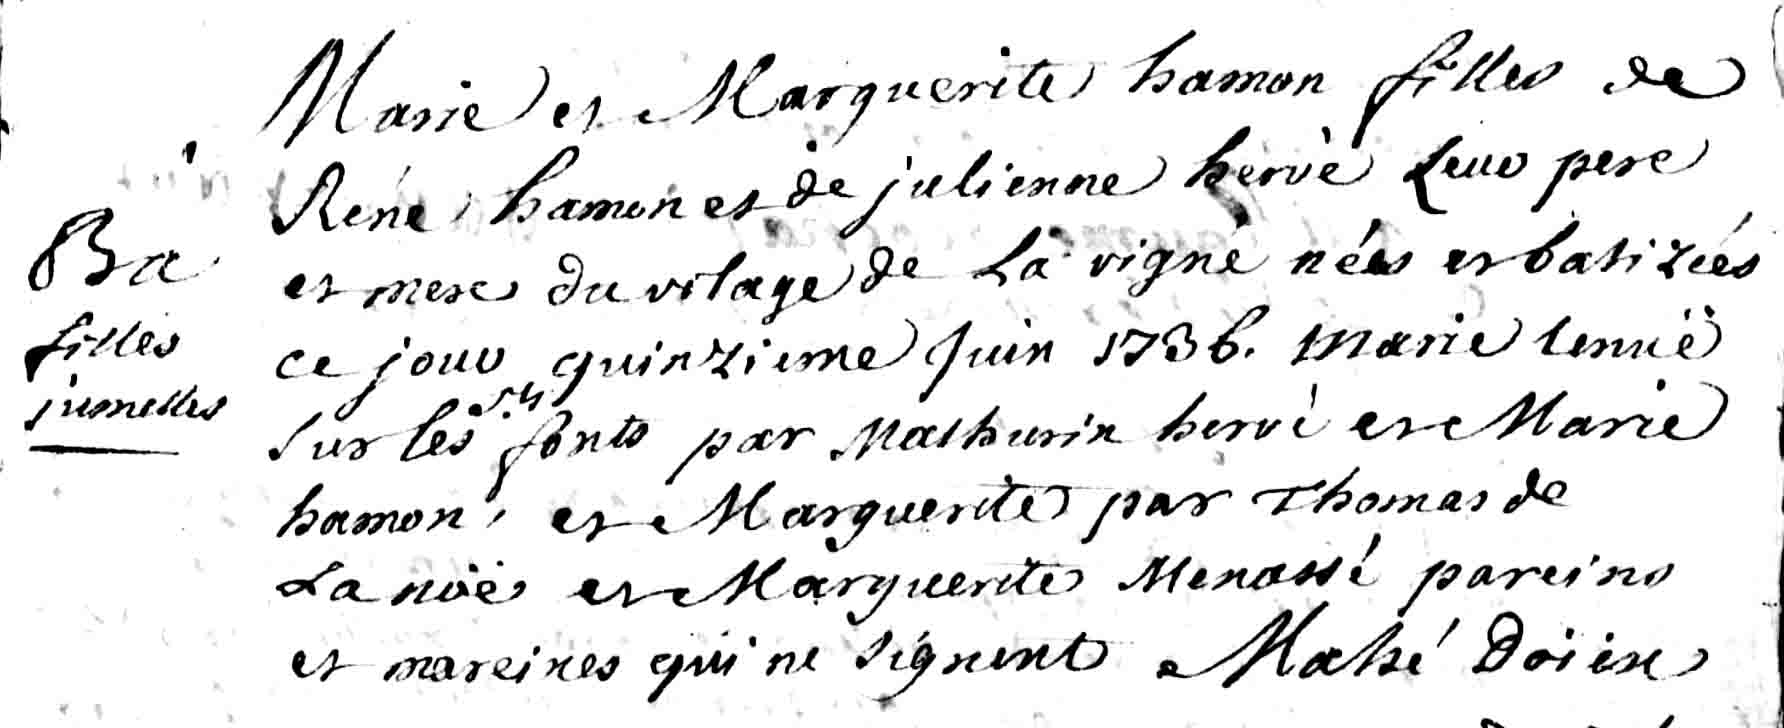 Marie et Marguerite hamon filles de
René hamon et de julienne hervé Leur pere
et mere du vilage de La vigne nées et batizées
ce jour quinzieme Juin 1736. Marie tenuë
sur les sts fonts par Mathurin hervé et Marie
hamon, et Marguerite par Thomas de
La noë et Marguerite Menassé pareins
et mareines qui ne signent Mahé Doien
Ba
filles
jumelles